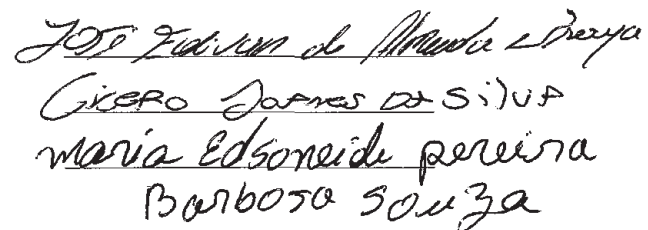 José Edivan de Almeida
Cicero Joares da Silva
maria Edsoneide pereira
Barbosa Souza